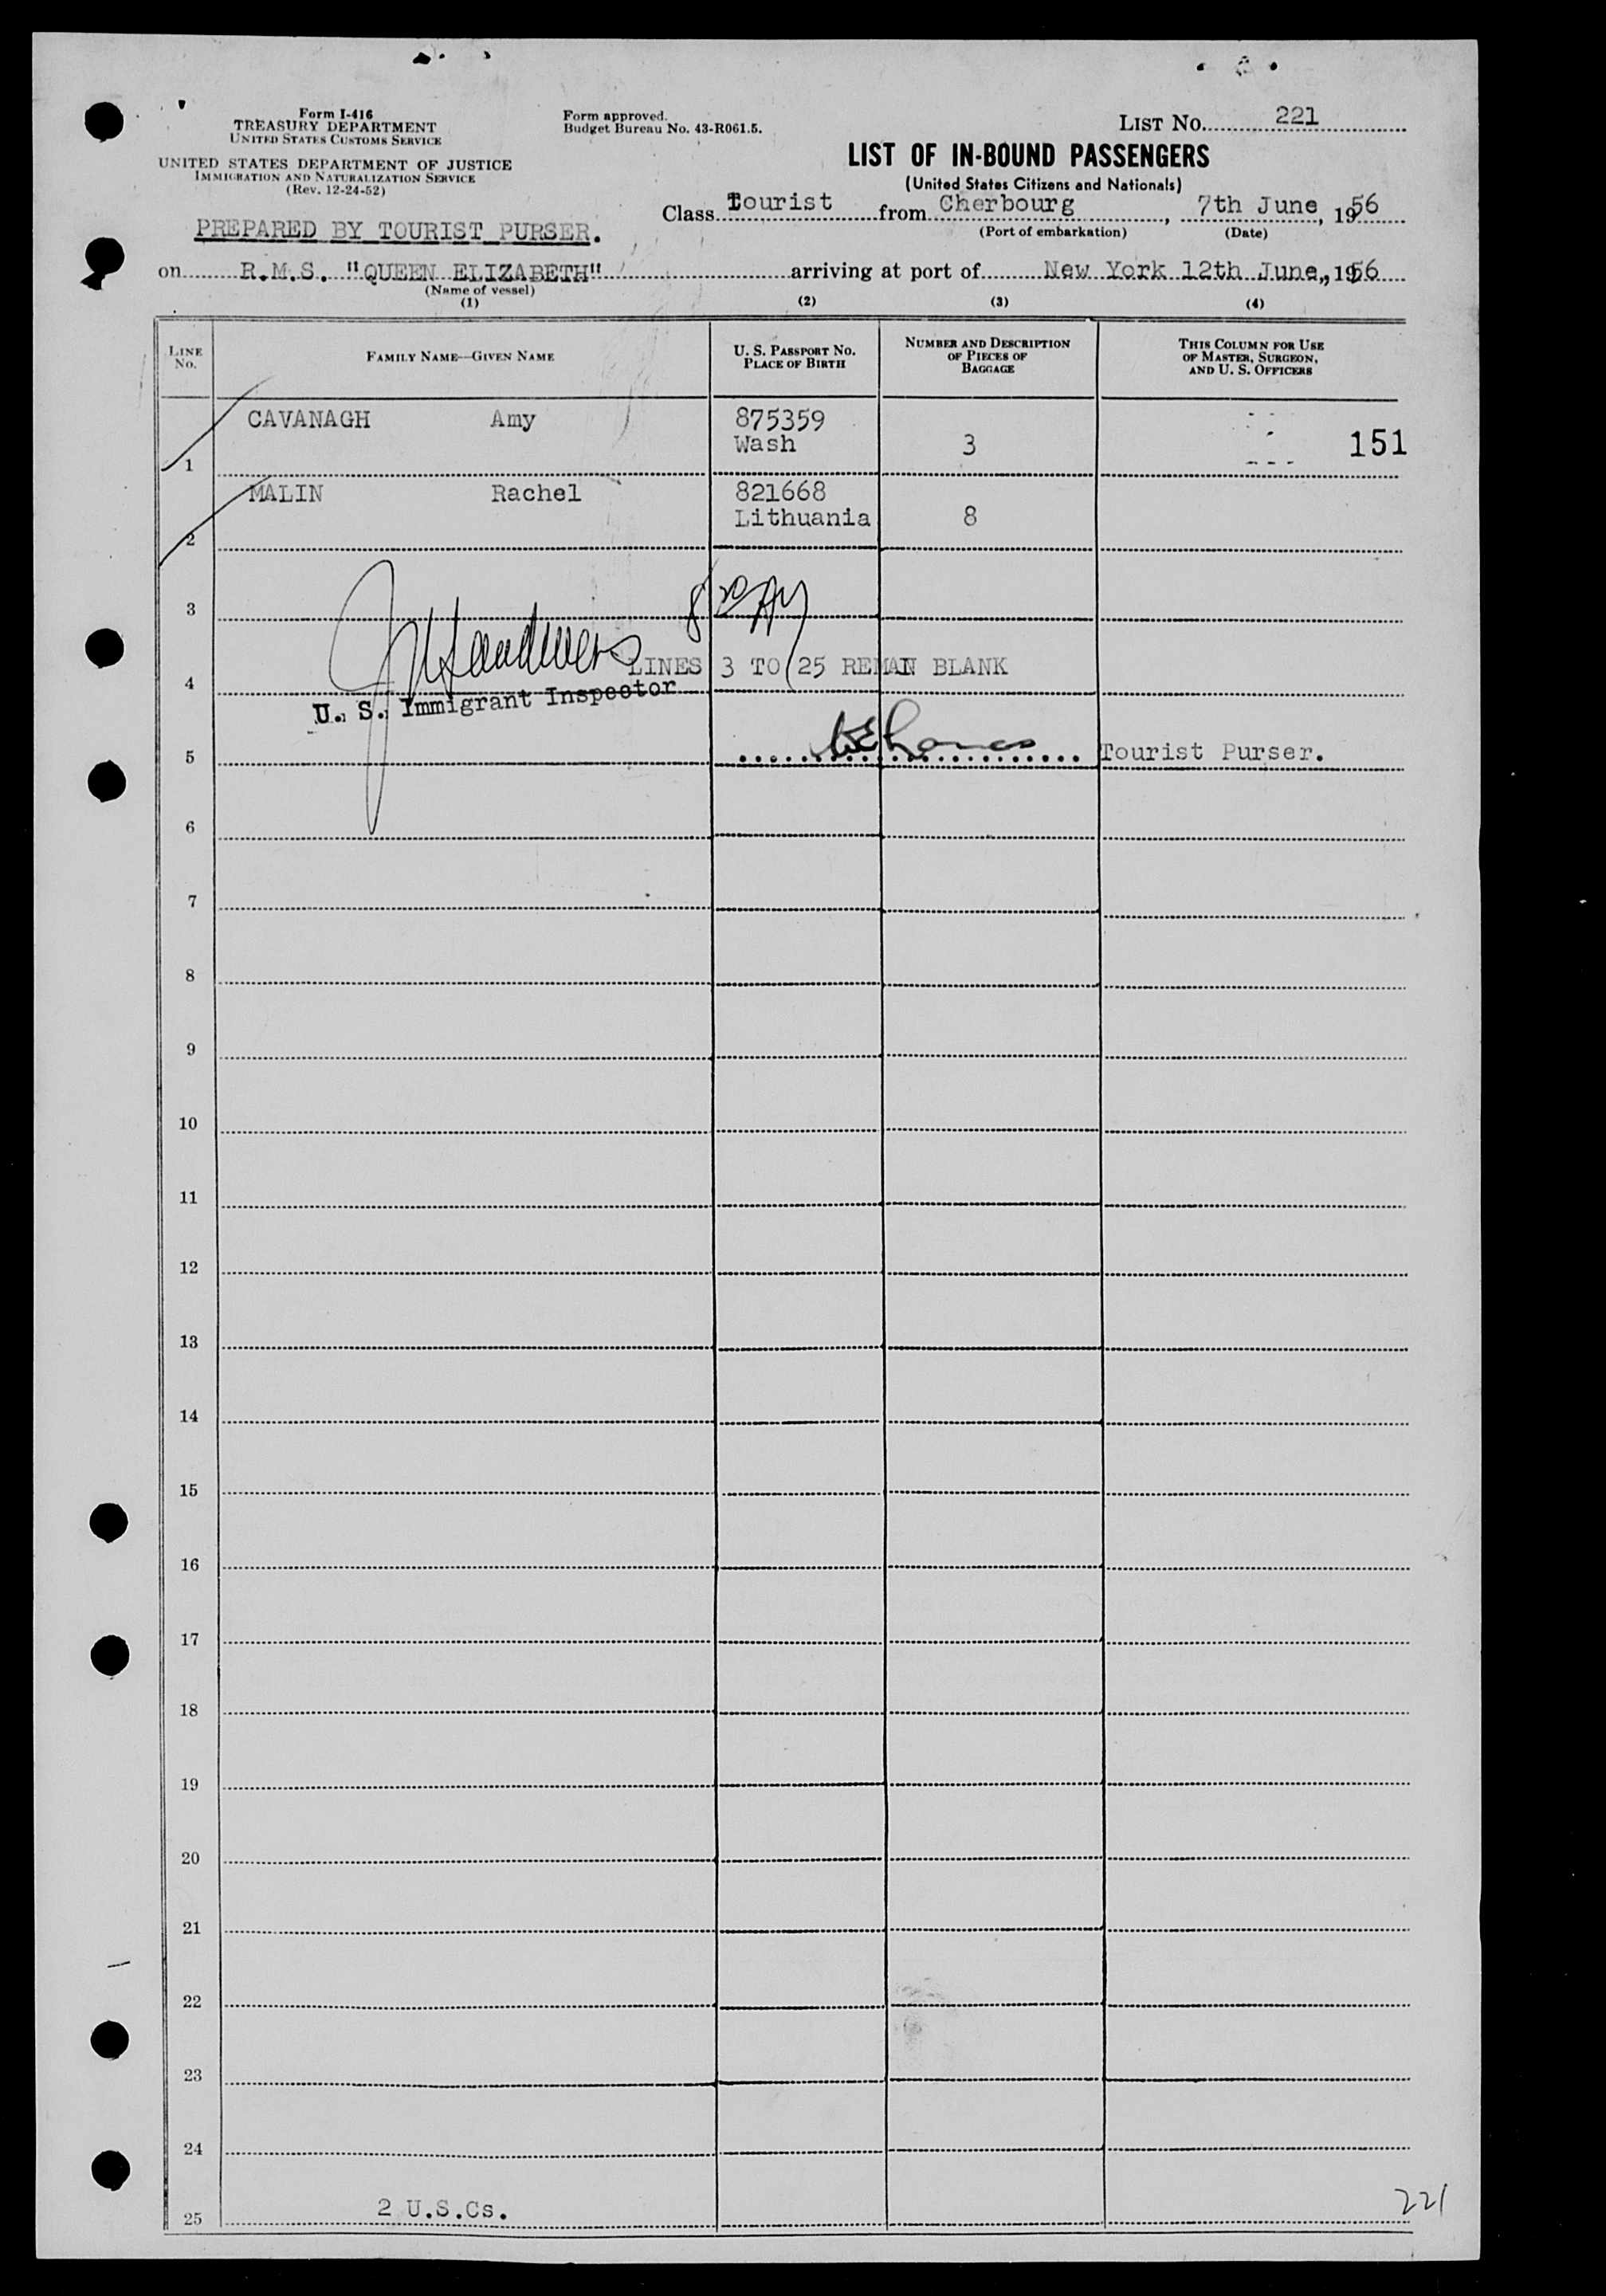 Form I-416
TREASURY DEPARTMENT
UNITED STATES CUSTOMS SERVICE
UNITED STATES DEPARTMENT OF JUSTICE
IMMIGRATION AND NATURALIZATION SERVICE
(Rev. 12-24-52)
Form approved.
Budget Bureau No. 43-R061.5.
LIST No. 221
LIST OF IN-BOUND PASSENGERS
(United States Citizens and Nationals)
PREPARED BY TOURIST PURSER.
Class Tourist from Cherbourg, 7th June, 1956
(Port of embarkation) (Date)
on R.M.S. "QUEEN ELIZABETH" arriving at port of New York 12th June, 1956
(Name of vessel)
(1) (2) (3) (4)
LINE No. FAMILY NAME—GIVEN NAME U. S. PASSPORT No. PLACE OF BIRTH NUMBER AND DESCRIPTION OF PIECES OF BAGGAGE THIS COLUMN FOR USE OF MASTER, SURGEON, AND U. S. OFFICERS
CAVANAGH Amy 875359
1 Wash 3 151
MALIN Rachel 821668
2 Lithuania 8
3
4 LINES 3 TO 25 REMAIN BLANK
U. S. Immigrant Inspector
5 Tourist Purser.
6
7
8
9
10
11
12
13
14
15
16
17
18
19
20
21
22
23
24
25 2 U.S.Cs.
221